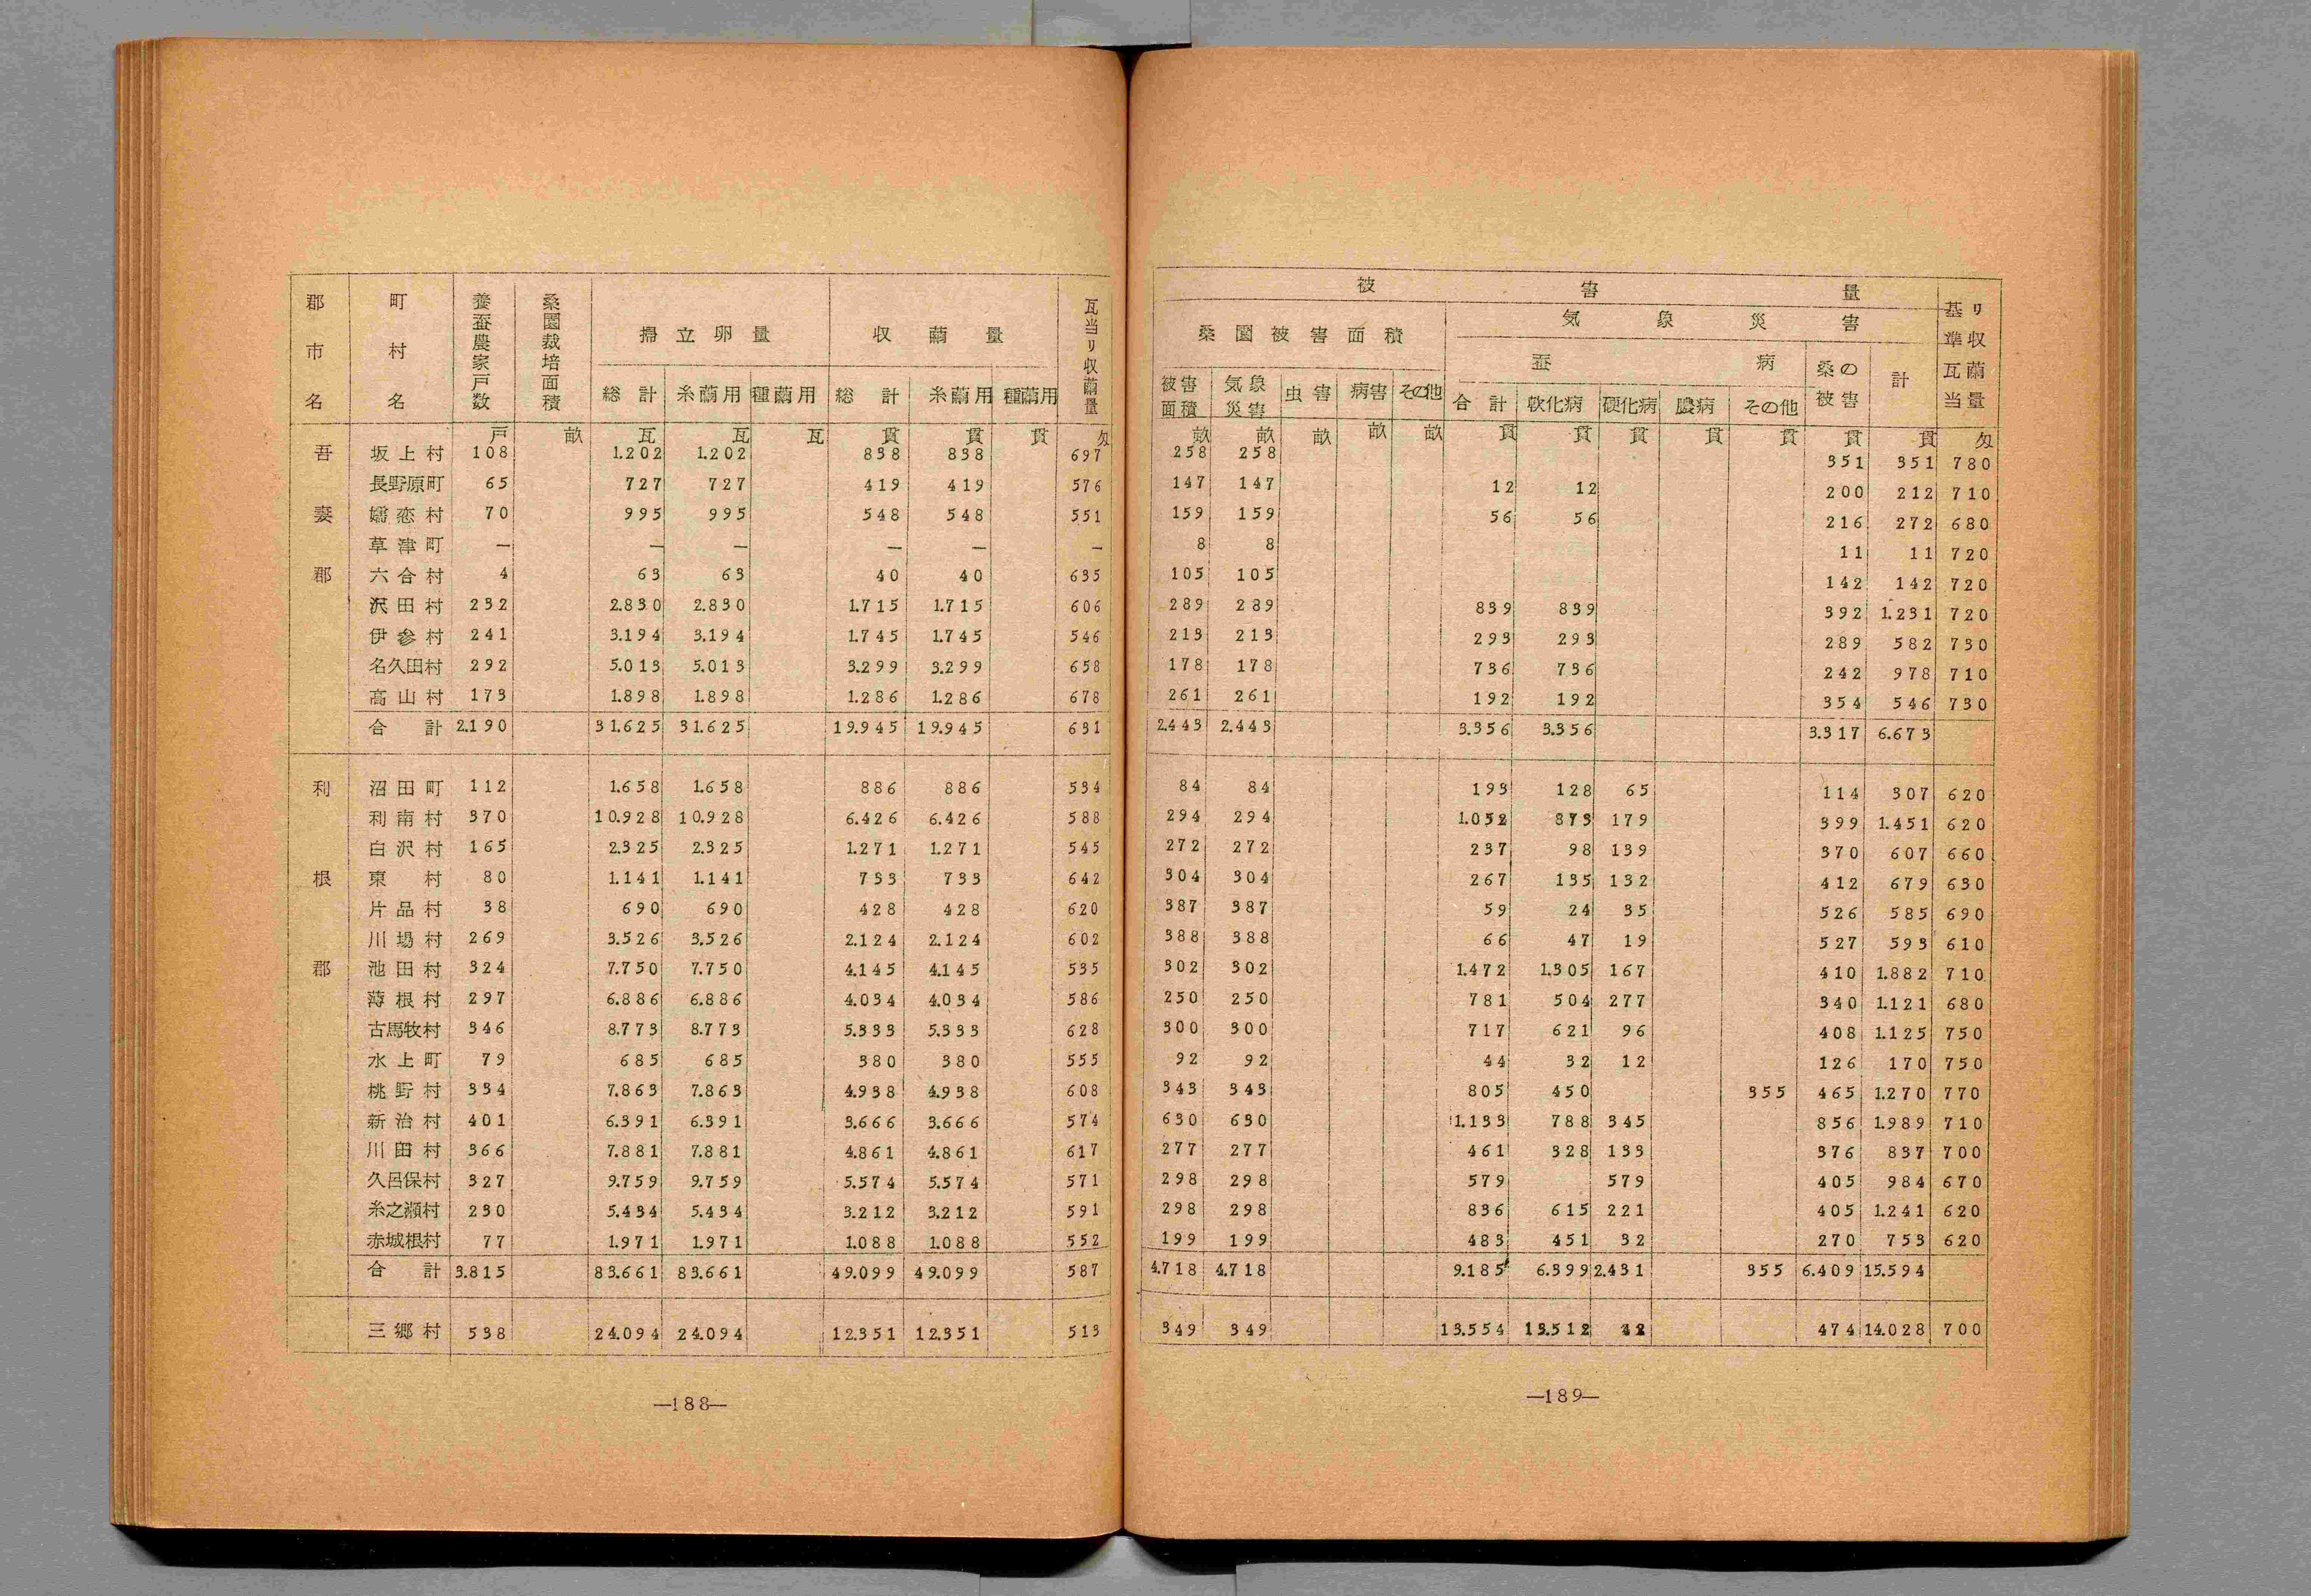 郡市名 町村名 養蚕農家戸数 桑園栽培面積 掃立卵量 収繭量 瓦当リ収繭量
総計 糸繭用 種繭用 総計 糸繭用 種繭用
戸 畝 瓦 瓦 瓦 貫 貫 貫 匁
吾妻郡
坂上村 108 1.202 1.202 838 838 697
長野原町 65 727 727 419 419 576
嬬恋村 70 995 995 548 548 551
草津町 — — — — — —
六合村 4 63 63 40 40 635
沢田村 232 2.830 2.830 1.715 1.715 606
伊参村 241 3.194 3.194 1.745 1.745 546
名久田村 292 5.013 5.013 3.299 3.299 658
高山村 173 1.898 1.898 1.286 1.286 678
合計 2.190 31.625 31.625 19.945 19.945 631
利根郡
沼田町 112 1.658 1.658 886 886 534
利南村 370 10.928 10.928 6.426 6.426 588
白沢村 165 2.325 2.325 1.271 1.271 545
東村 80 1.141 1.141 733 733 642
片品村 38 690 690 428 428 620
川場村 269 3.526 3.526 2.124 2.124 602
池田村 324 7.750 7.750 4.145 4.145 535
薄根村 297 6.886 6.886 4.034 4.034 586
古馬牧村 346 8.773 8.773 5.333 5.333 628
水上町 79 685 685 380 380 555
桃野村 334 7.863 7.863 4.938 4.938 608
新治村 401 6.391 6.391 3.666 3.666 574
川田村 366 7.881 7.881 4.861 4.861 617
久呂保村 327 9.759 9.759 5.574 5.574 571
糸之瀬村 230 5.434 5.434 3.212 3.212 591
赤城根村 77 1.971 1.971 1.088 1.088 552
合計 3.815 83.661 83.661 49.099 49.099 587
三郷村 538 24.094 24.094 12.351 12.351 513
—188—
被害量
桑園被害面積 気象災害 基準瓦当リ収繭量
蚕病 桑の被害 計
被害面積 気象災害 虫害 病害 その他 合計 軟化病 硬化病 膿病 その他
畝 畝 畝 畝 畝 貫 貫 貫 貫 貫 貫 貫 匁
258 258 351 351 780
147 147 12 12 200 212 710
159 159 56 56 216 272 680
8 8 11 11 720
105 105 142 142 720
289 289 839 839 392 1.231 720
213 213 293 293 289 582 730
178 178 736 736 242 978 710
261 261 192 192 354 546 730
2.443 2.443 3.356 3.356 3.317 6.673
84 84 193 128 65 114 307 620
294 294 1.052 873 179 399 1.451 620
272 272 237 98 139 370 607 660
304 304 267 135 132 412 679 630
387 387 59 24 35 526 585 690
388 388 66 47 19 527 593 610
302 302 1.472 1.305 167 410 1.882 710
250 250 781 504 277 340 1.121 680
300 300 717 621 96 408 1.125 750
92 92 44 32 12 126 170 750
343 343 805 450 355 465 1.270 770
630 630 1.133 788 345 856 1.989 710
277 277 461 328 133 376 837 700
298 298 579 579 405 984 670
298 298 836 615 221 405 1.241 620
199 199 483 451 32 270 753 620
4.718 4.718 9.185 6.399 2.431 355 6.409 15.594
349 349 13.554 13.512 42 474 14.028 700
—189—